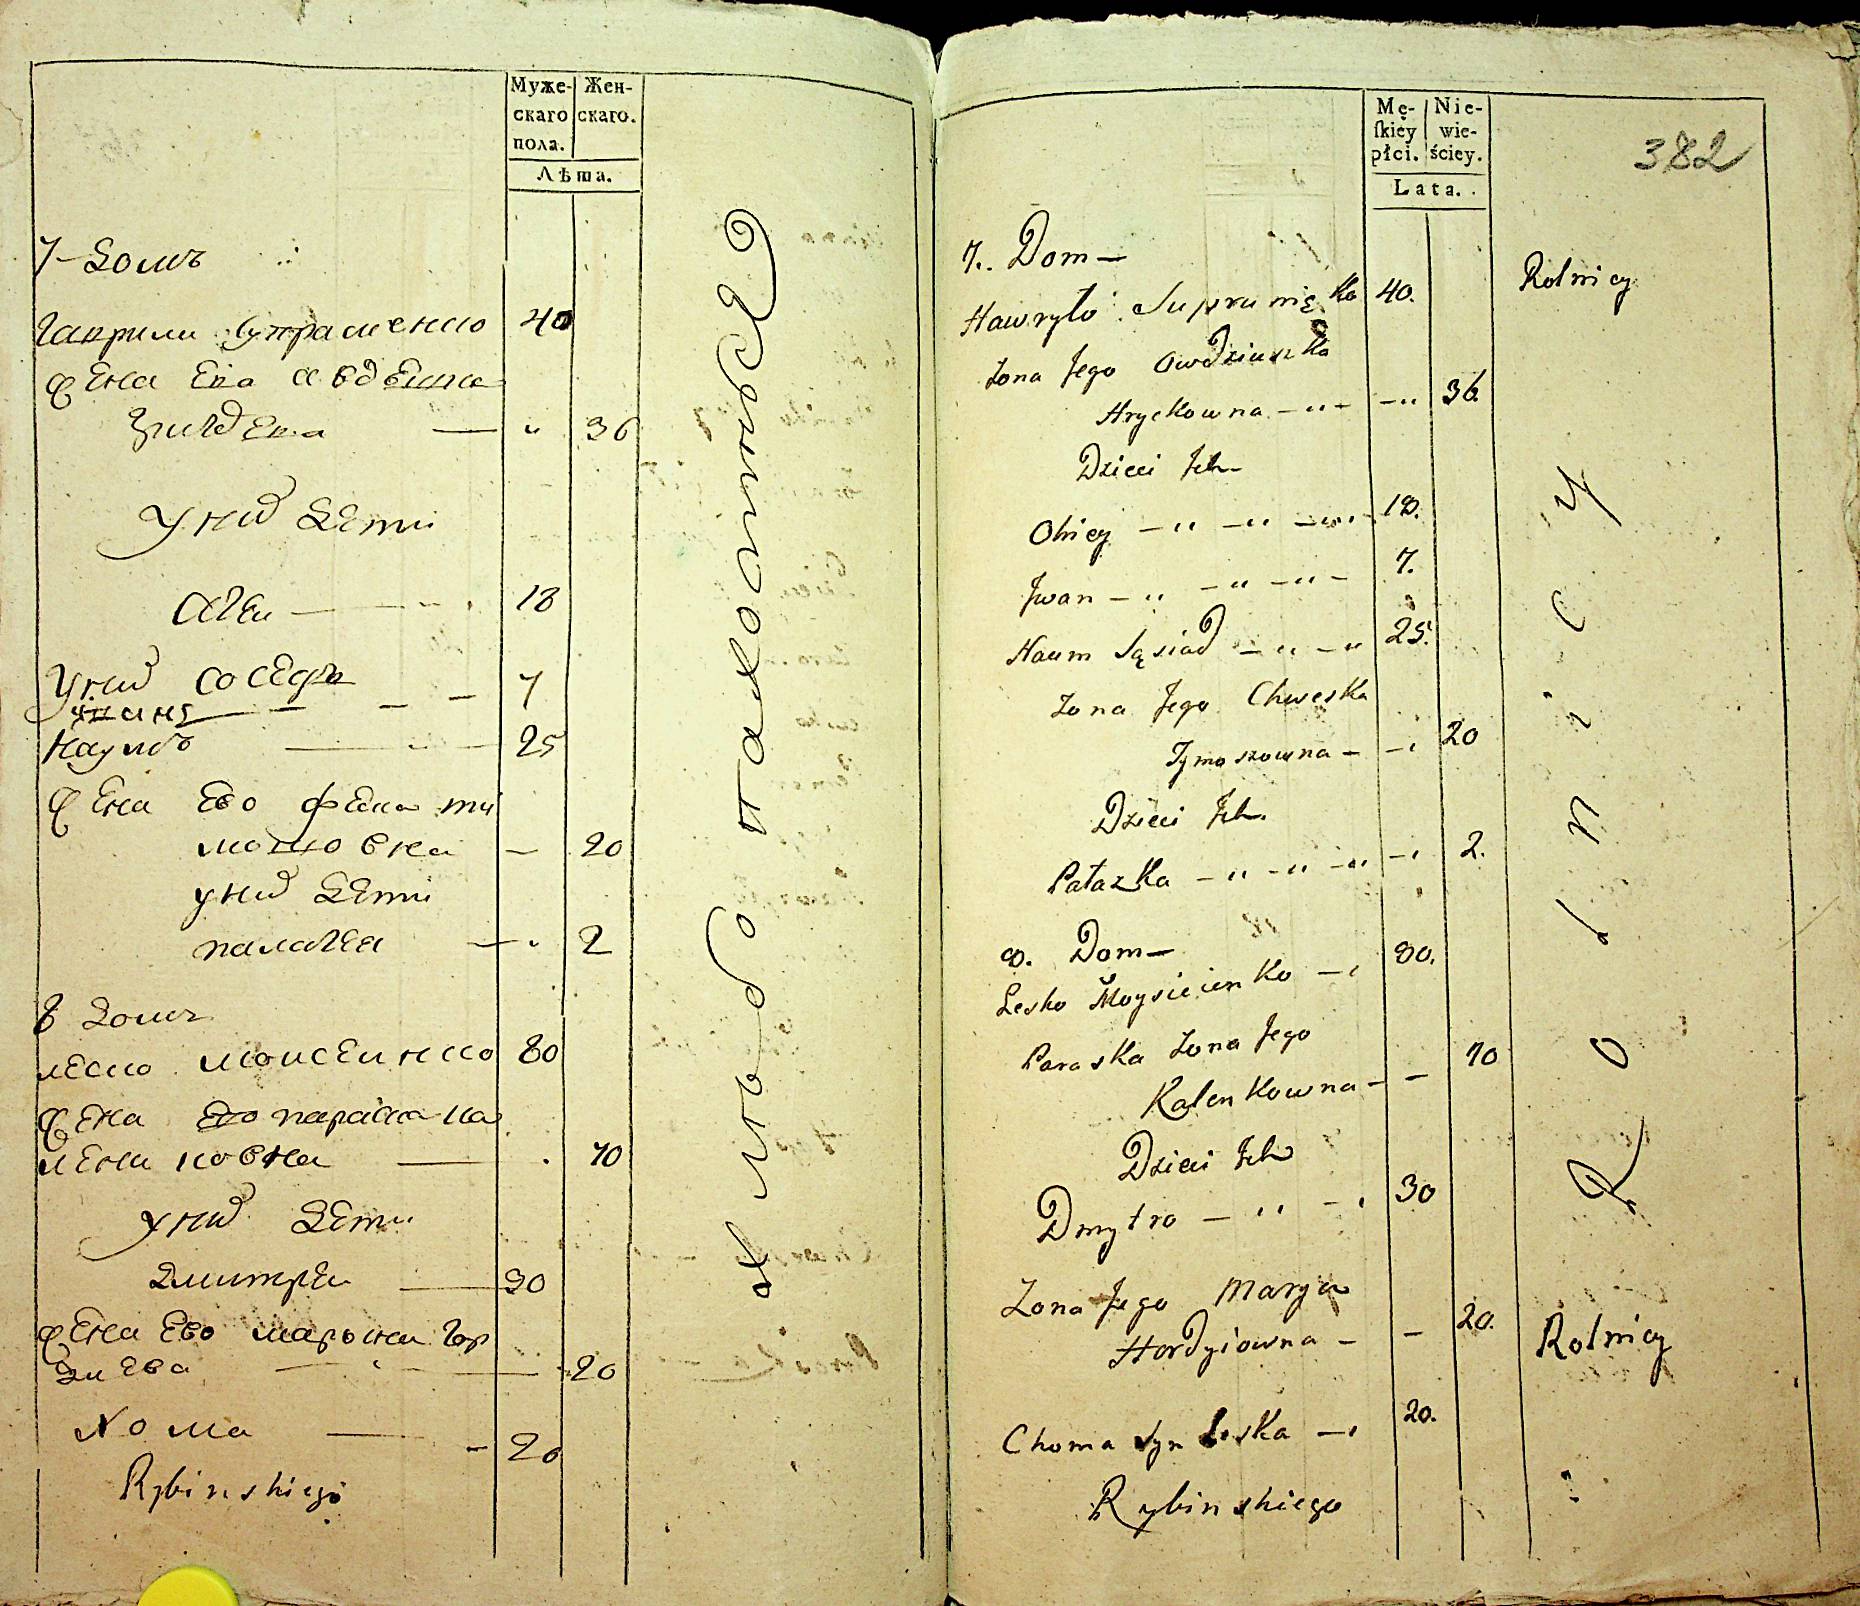 Муже-
скаго
пола.
Жен-
скаго.
Лѣта.
7 домъ
Гаврили Супраненко 40
жена Ево авдюшка
" 36
у них дети
18
у них соседъ
7
наумъ 25
жена Ево феска ти
мошовна 20
у них дети
палажка 2
8 домъ
леско моисеинко 80
жена Ево параска ка
ленковна 70
у них дети
дмитреи 30
жена Ево марьяна гор
диева 20
хома 20
Rybinskiego
Mę-
ſkiéy
płci.
Nie-
wie-
ściey.
Lata.
382
7. Dom
Hawryło Supranięko 40. Rolnicy
Żona Jego Owdziuszka
Hryckowna 36.
Dzieci Ich
18.
Jwan 7.
Naum Sąsiad 25.
Żona Jego Chweska
Tymoszowna 20
Dzieci Ich
Pałazka 2.
8. Dom
Lesko Moysieienko 80.
Paraska Żona Jego
Kalenkowna 70
Dzieci Ich
Dmytro 30
Żona Jego Marya
Hordyiowna 20. Rolnicy
Choma Syn Leska 20.
Rybinskiego
Rolnicy